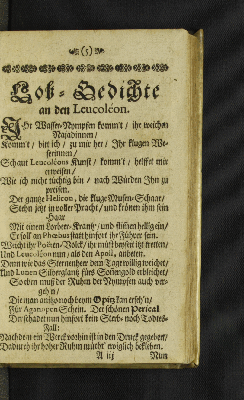 (5)
Lob-Gedichte
an den Leucoléon.
Ihr Wasser-Nympfen komm't / ihr weichen
Najadinnen /
Kommt / bin ich / zu mir her / Ihr klugen We-
berinnen /
Schaut Leucoléons Kunst / komm't / helfft mir
erweisen /
Wie ich nicht tüchtig bin / nach Würden Ihn zu
preisen.
Der gantze Helicon, die kluge Musen-Schaar /
Stehn jetzt in voller Pracht / und krönen ihm sein
Haar
Mit einem Lorbeer-Krantz / und stehen hell
Er soll an Phoebus statt hinfort ihr Führer seyn.
Weicht ihr Poëten-Völck / ihr müst beyseit itzt tretten /
Und Leucoléon nun / als den Apoll, anbeten.
Denn wie das Sternenheer dem Tage willig weichet /
Und Lunen Silberglantz fürs Sonnengold erbleichet /
So eben muß der Ruhm der Nympfen auch ver-
gehn /
Die man an itzo noch beym Opitz kan
Für Aganopen Schein. Der schönen Perical
Der schadet nun hinfort kein Sterb- noch Todtes-
Fall:
Nachdem ein Werck von ihn ist in den Druck gegeben /
Dadurch ihr hoher Ruhm ewiglich bekleben.
A iij
Nun